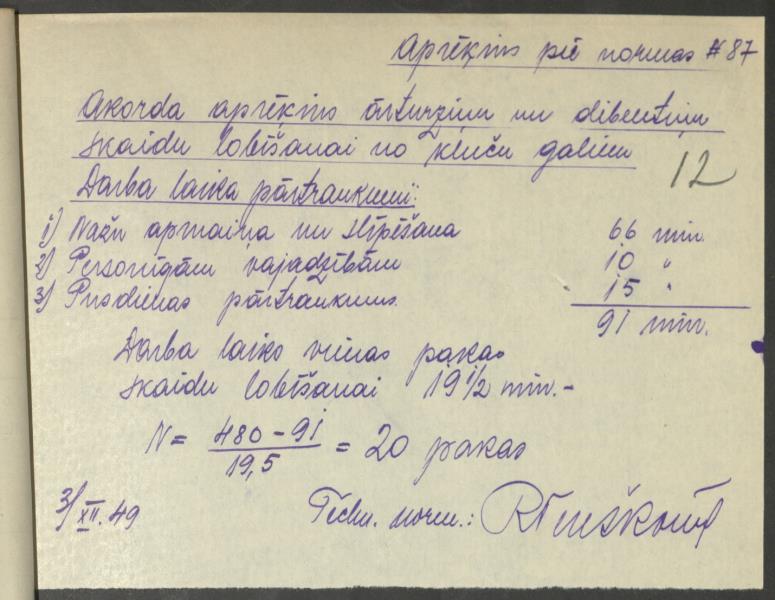 Aprēķins pie normas #87
Akorda aprēķins ārturziņu un dibentiņu
skaidu lobīšanai no kluču galiem
12
Darba laika pārtraukumi:
1) Nažu apmaiņa un slīpēšana 66 min.
2) Personīgām vajadzībām 10 "
3) Pusdienas pārtraukums 15 "
91 min.
Darba laiks vienas pakas
skaidu lobīšanai 19 1/2 min.-
N = 480-91 / 19,5 = 20 pakas
3/XII.49 Techn. norm.: